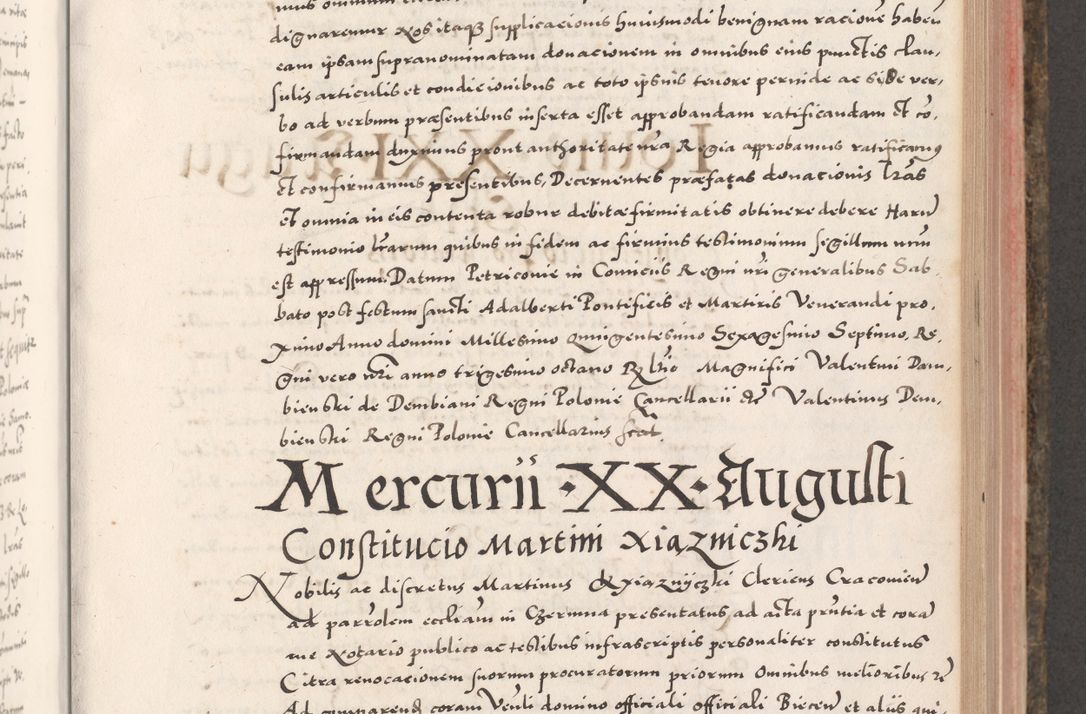 dignaremur Nos itaq3 supplicacionis huiusmodi benignam racione haben
eam ipsam supranominatam donacionem in omnibus eius punctis clau-
sulis articulis et condicionibus ac toto ipsius tenore perinde ac si de ver-
bo ad verbum præsentibus inserta esset approbandam ratificandam Et co-
firmandam duximus prout authoritate nra Regia approbamus ratificamus
Et confirmamus presentibus, Decernentes præfatas donacionis lras
et omnia in eis contenta robur debitæ firmitatis obtinere debere Harum
testimonio lrarum quibus in fidem ac firmius testimonium sigillum nrum
est appressum. Datum Petriconie in Comiciis Regni nri generalibus Sab-
bato post festum sancti Adalberti Pontificis et Martiris Venerandi pro-
ximo Anno domini Millesimo Quingentesimo Sexagesimo Septimo, Re-
gni vero nri anno trigesimo octavo Rlatio Magnifici Valentini Dam-
bienski de Dembiani Regni Polonie Cancellarii etc Valentinus Dem-
bienski Regni Polonie Cancellarius sscst
Mercurii · XX · Augusti
Constitucio Martini Xiązniczki
Nobilis ac discretus Martinus Xiąznyczki Clericus Cracovien
ad parrolem eccliam in Czermna presentatus, ad acta pntia et cora
me Notario publico ac testibus infrascriptis personaliter constitutus
Citra revocacionem suorum procuratorum priorum Omnibus melioribus
Ad comparend coram Venli domino officiali officiali Biecen et aliis qui-